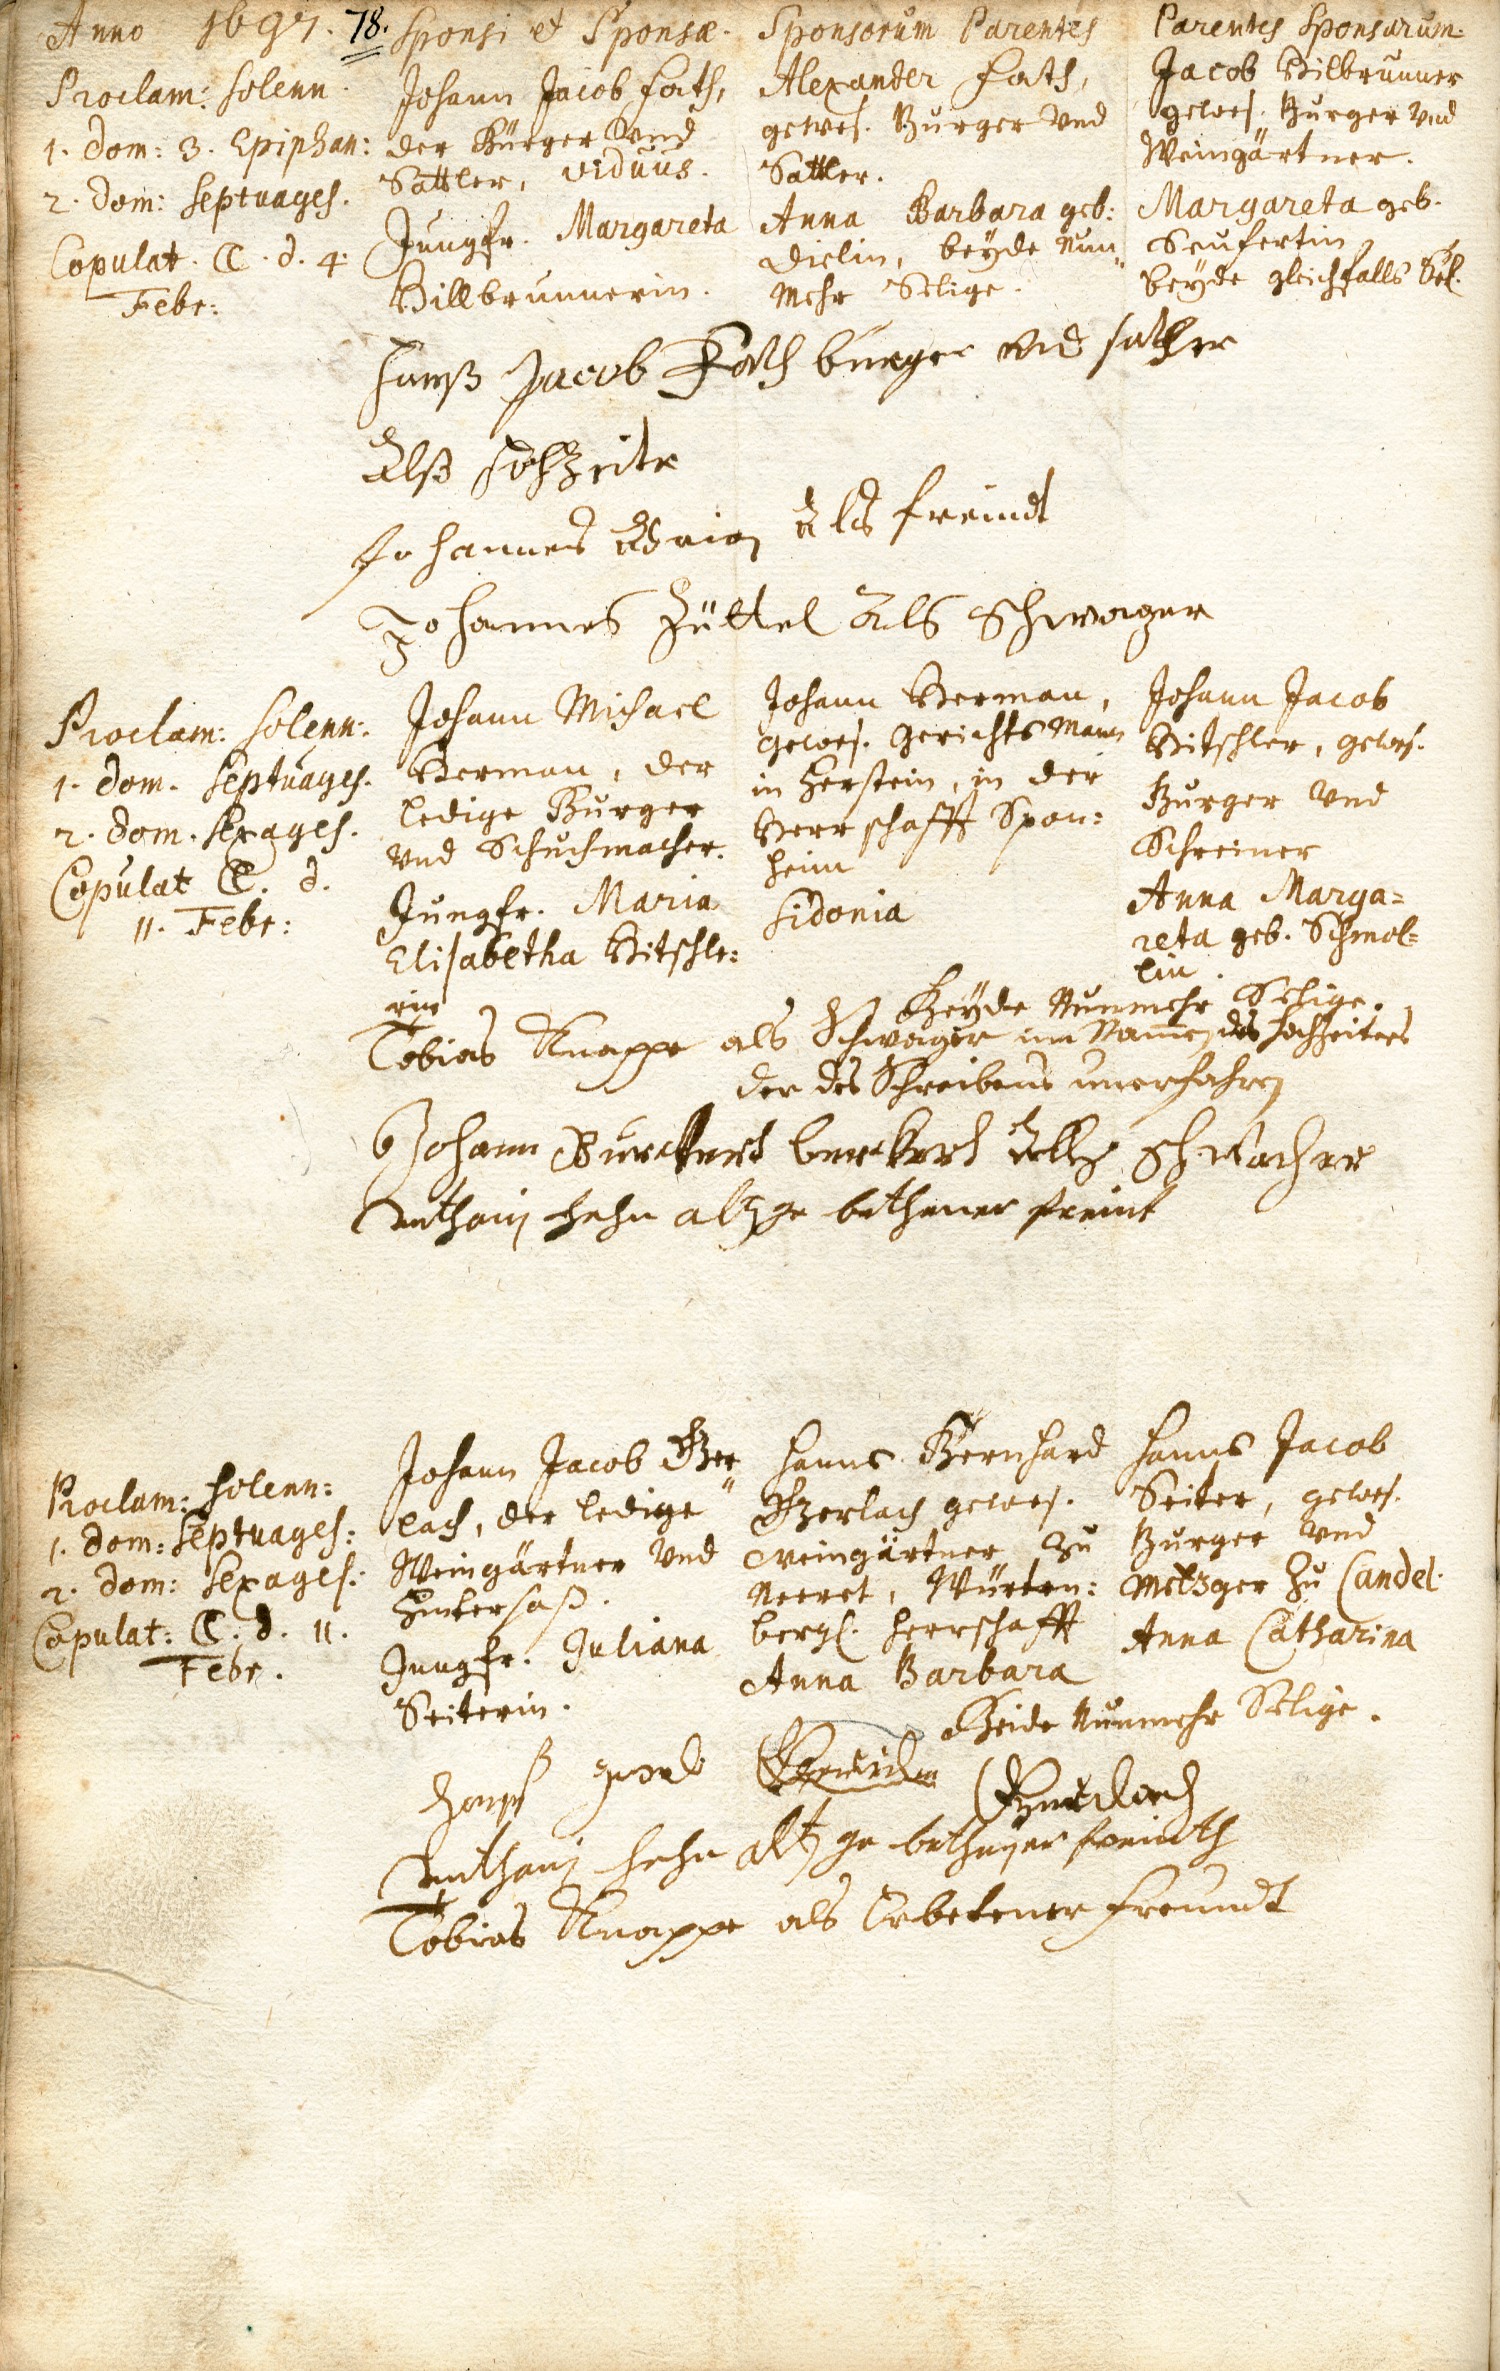 Anno 1697. 78.
Sponsi et Sponsæ.
Sponsorum Parentes
Parentes Sponsarum.
Proclam: solenn.
1. Dom: 3. Epiphan:
2. Dom: Septuages.
Copulat. C. d. 4.
Febr:
Johann Jacob Fath,
der Bürger Vnd
Sattler, viduus.
Jungfr. Margareta
Billbrunnerin.
Alexander Fath,
gewes. Burger Vnd
Sattler.
Anna Barbara geb:
Dielin, beyde Nun„
Mehr Selige.
Jacob Bilbrunner
gewes. Burger Vnd
Weingärtner.
Margareta geb.
Seufertin,
beyde gleichfalls Sel.
Hanß Jacob Fath burger Vnd sattler
Alß hochZeiter
Johannes Als freindt
Johannes Züttel Als Schwager
Proclam: solenn:
1. Dom. Septuages.
2. Dom. Sexages.
Copulat C. d.
11. Febr:
Johann Michael
Berman, der
ledige Burger
Vnd Schuchmacher.
Jungfr. Maria
Elisabetha Bitschle:
rin
Johann Berman,
gewes. GerichtsMann
in Herstein, in der
Herrschafft Spon:
heim
Sidonia
Johann Jacob
Bitschler, gewes.
Burger Vnd
Schreiner
Anna Marga=
reta geb. Schmol=
lin.
Beyde Nunmehr Selige.
Tobias Knappe als Schwager im Namen des Hochzeiters
der des Schreibens unerfahren
Johann Burckert
Anthonj Hehn alß ge bethener freint
Proclam: solenn:
1. Dom: Septuages:
2. Dom: Sexages:
Copulat: C. d. 11.
Febr.
Johann Jacob Ger„
lach, der ledige
Weingärtner Vnd
Hintersaß.
Jungfr. Juliana
Seiterin.
Hanns Bernhard
Gerlach gewes.
Weingärtner Zu
Neeret, Würten:
bergl. Herrschafft
Anna Barbara
Hanns Jacob
Seiter, gewes.
Burger Vnd
Metzger Zu Candel.
Anna Catharina
Beide Nunmehr Selige.
Hanß Jacob
Anthonj Hehn alß ge bethener freindth
Tobias Knappe als Erbetener Freundt